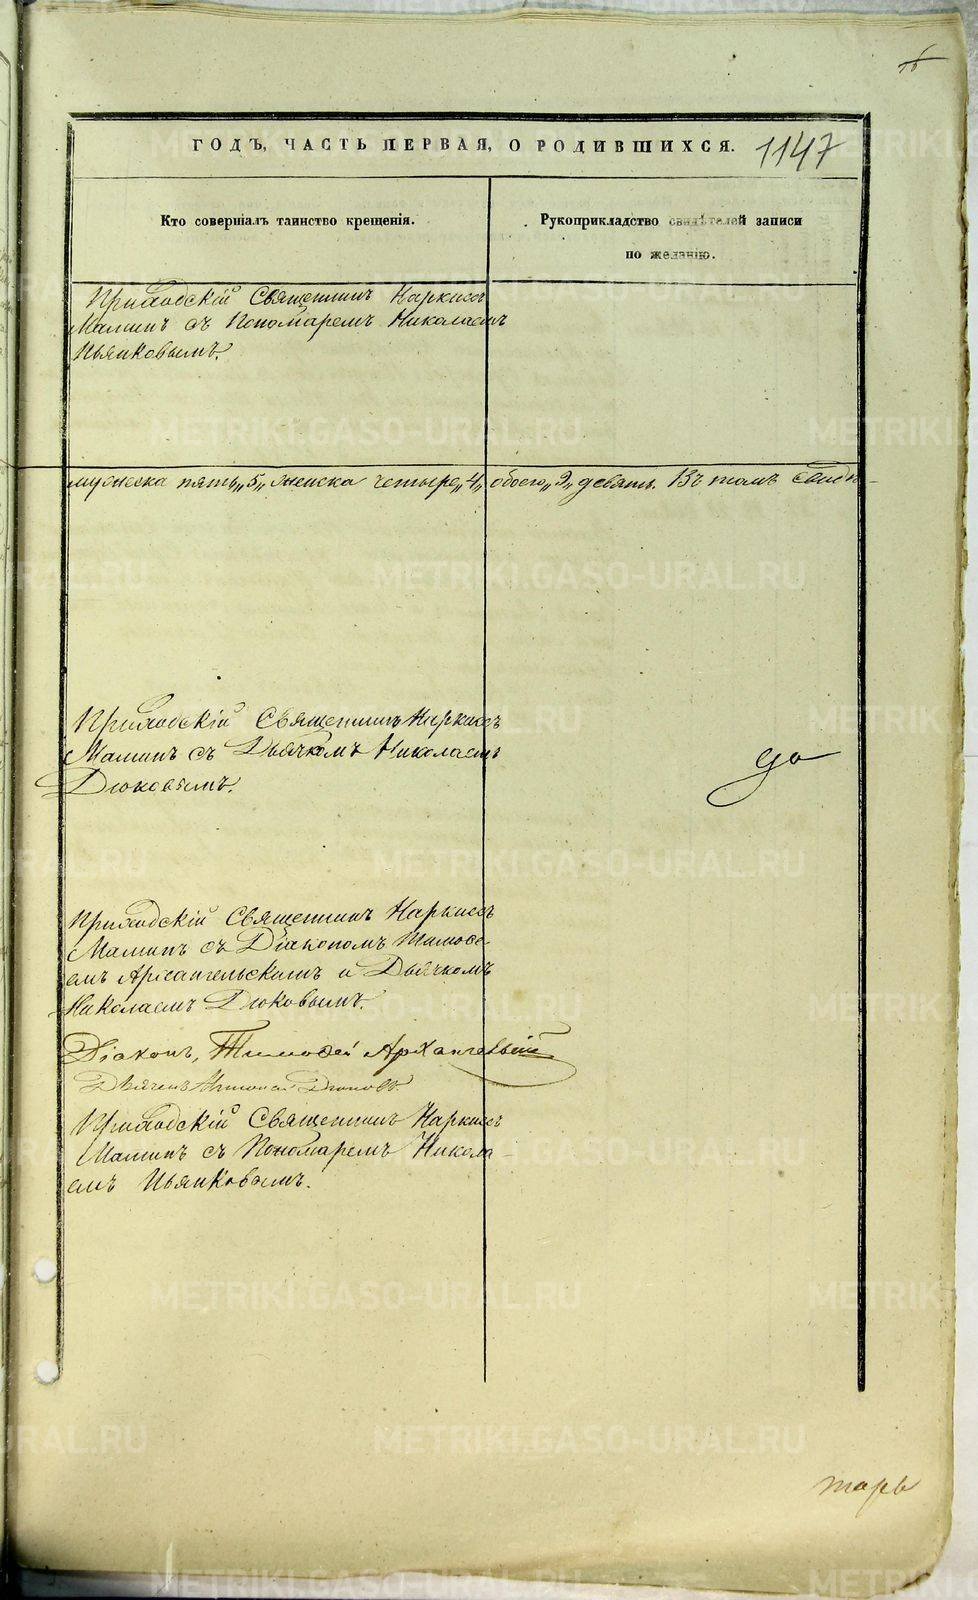 ГОДЪ, ЧАСТЬ ПЕРВАЯ, О РОДИВШИХСЯ. 1147
Кто совершалъ таинство крещенія.
Рукоприкладство свидѣтелей записи
по желанію.
Приходскій Священникъ Наркисъ
Маминъ съ Пономаремъ Николаемъ
Пьянковымъ.
мужеска пять „5„ женска четыре „4„ обоего „9„ девять. Въ томъ свидѣ-
Приходскій Священникъ Наркисъ
Маминъ съ Дьячкомъ Николаемъ
Дюковымъ.
да
Приходскій Священникъ Наркисъ
Маминъ съ Діакономъ Тимофе-
емъ Архангельскимъ и Дьячкомъ
Николаемъ Дюковымъ.
Діаконъ, Тимофей Архангельскій
Дьячекъ Николай Дюковъ
Приходскій Священникъ Наркисъ
Маминъ съ Пономаремъ Никола-
емъ Пьянковымъ.
тарь
METRIKI.GASO-URAL.RU